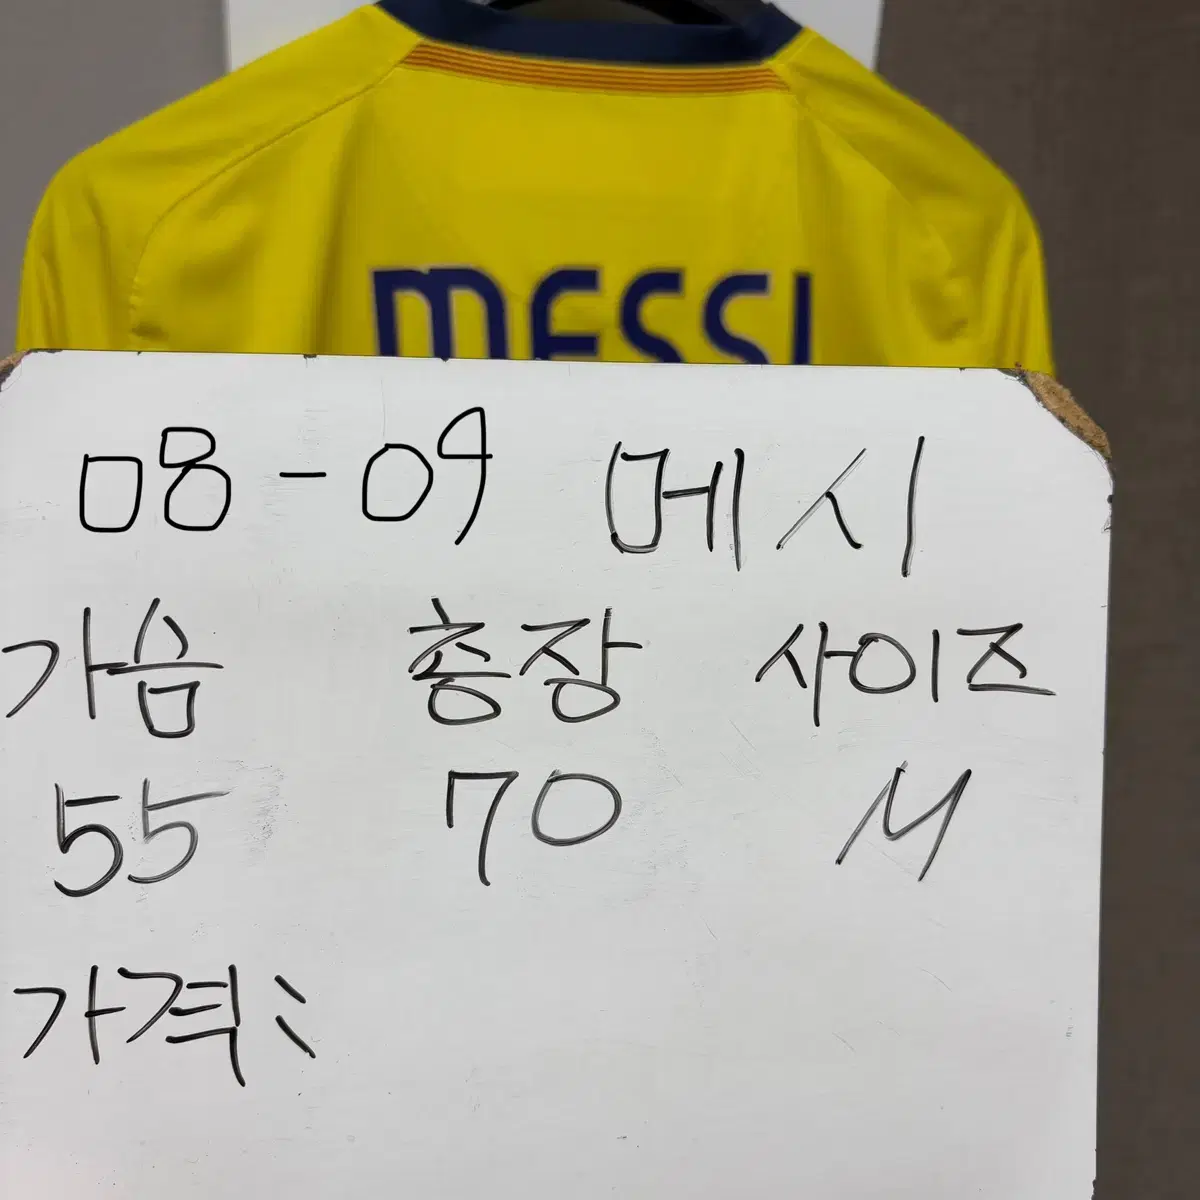 MESSI
08-09 메시
가슴 총장 사이즈
55 70 M
가격: